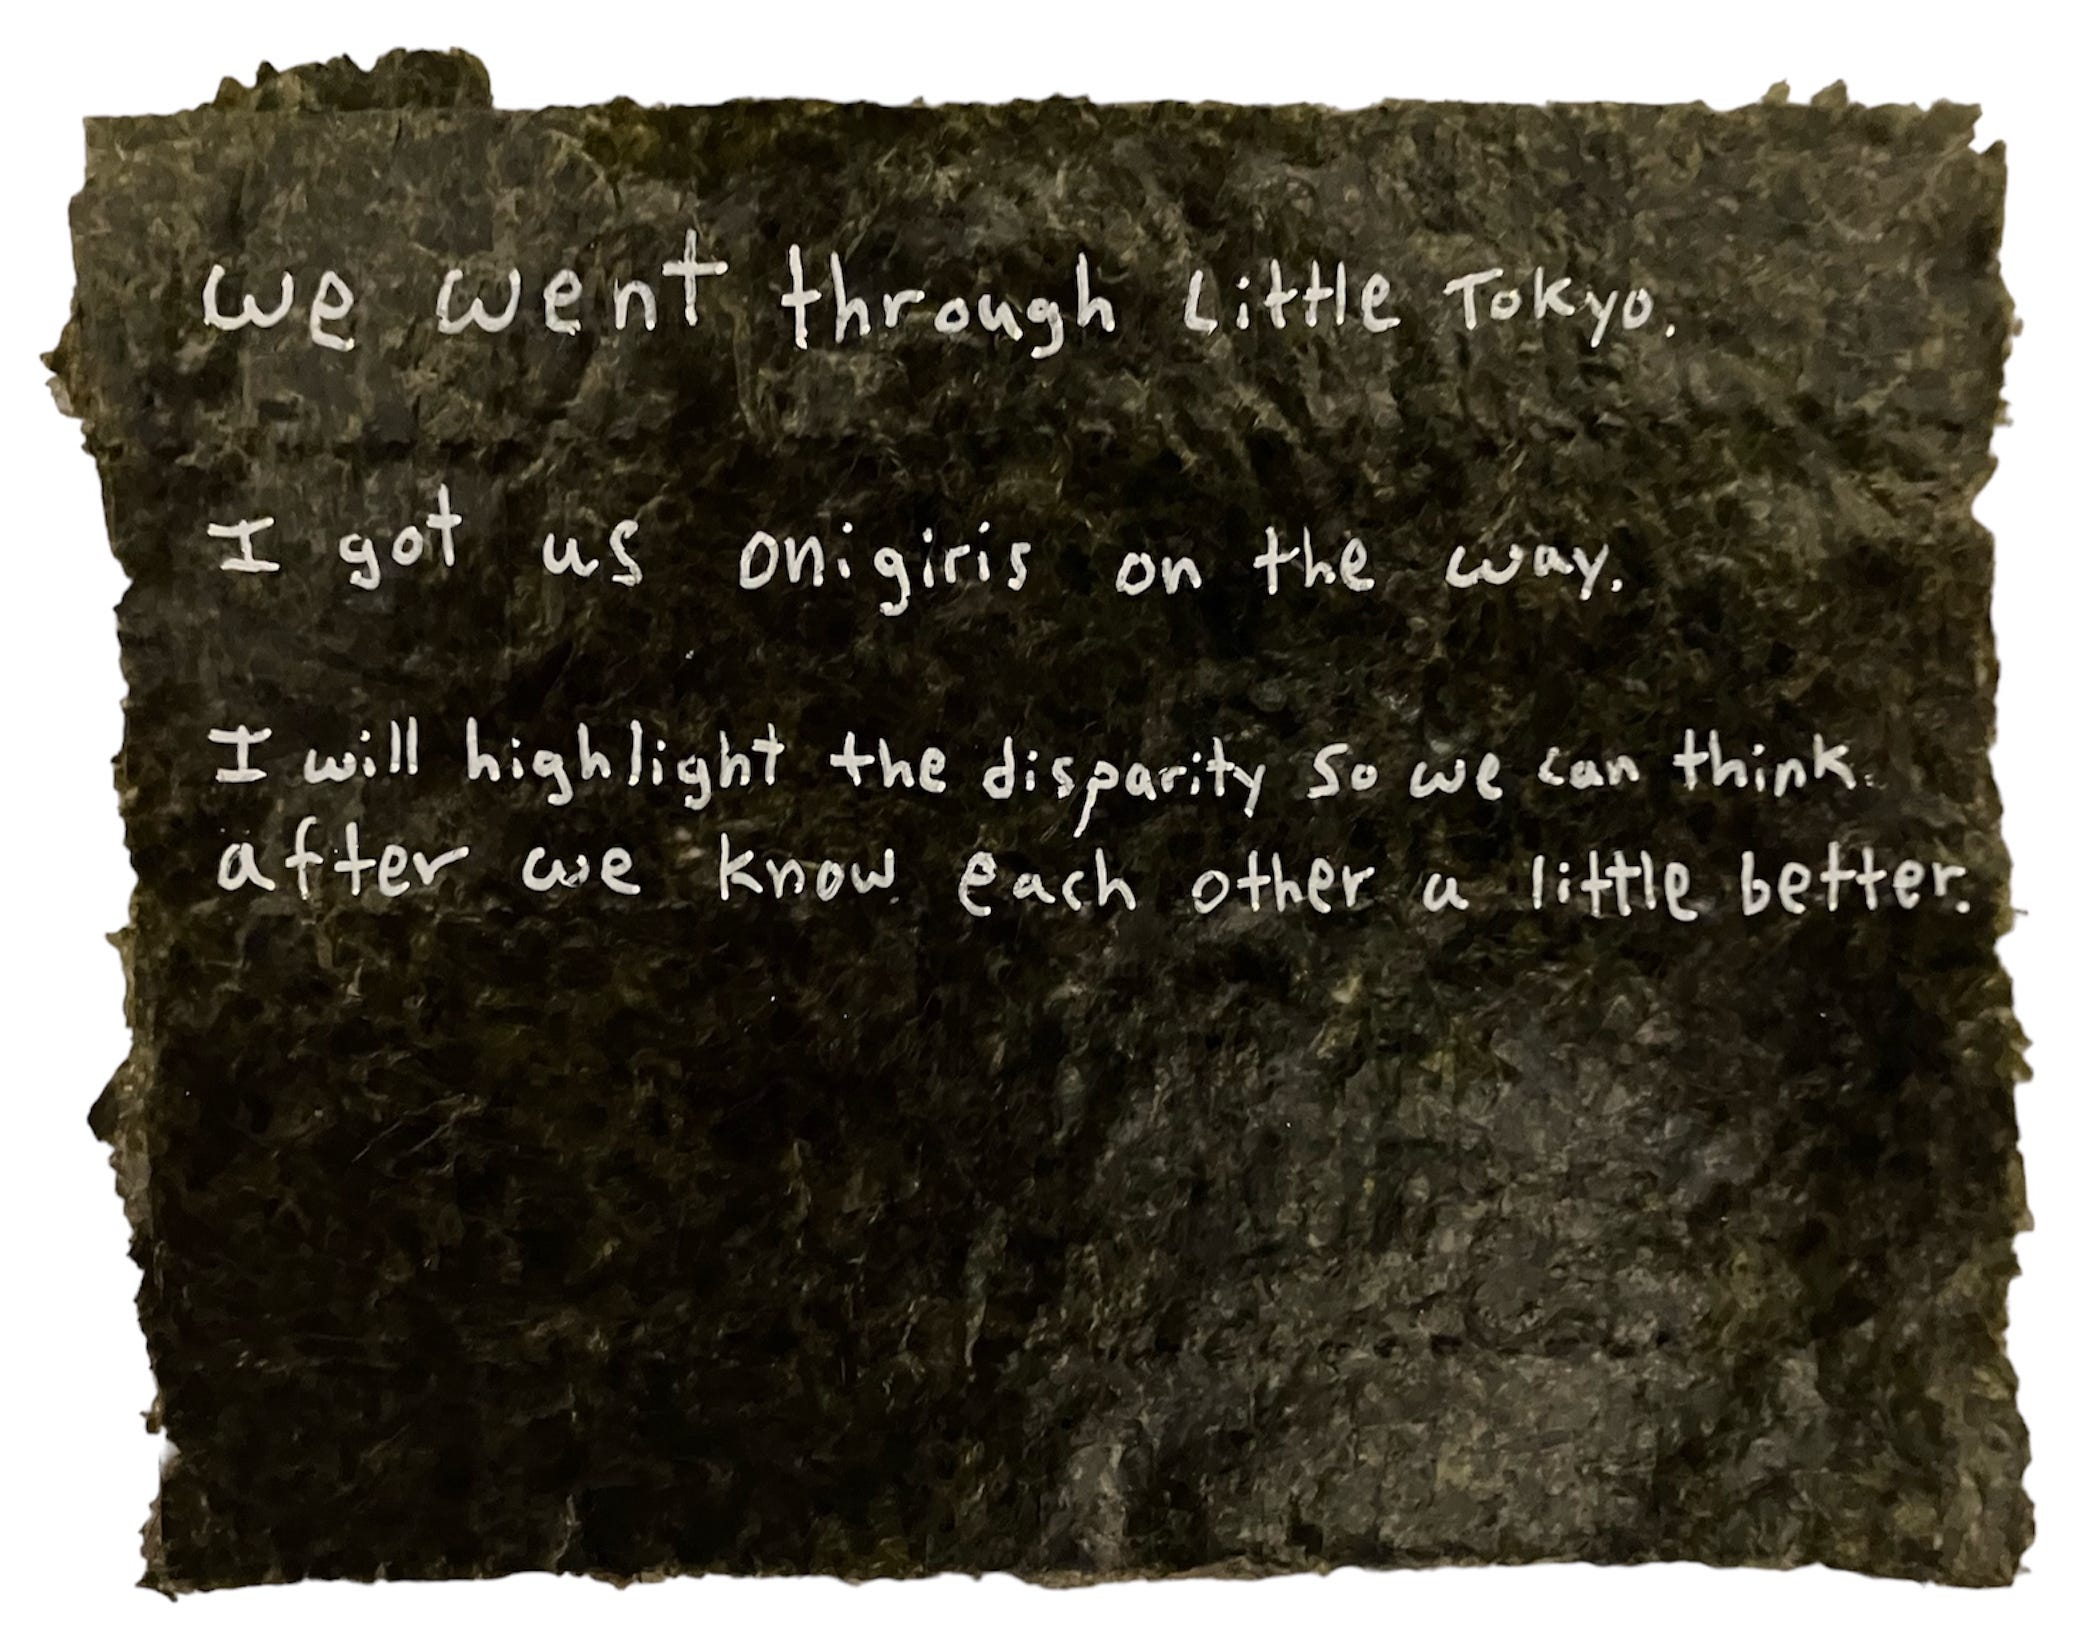 we went through Little Tokyo.
I got us onigiris on the way.
I will highlight the disparity so we can think
after we know each other a little better.